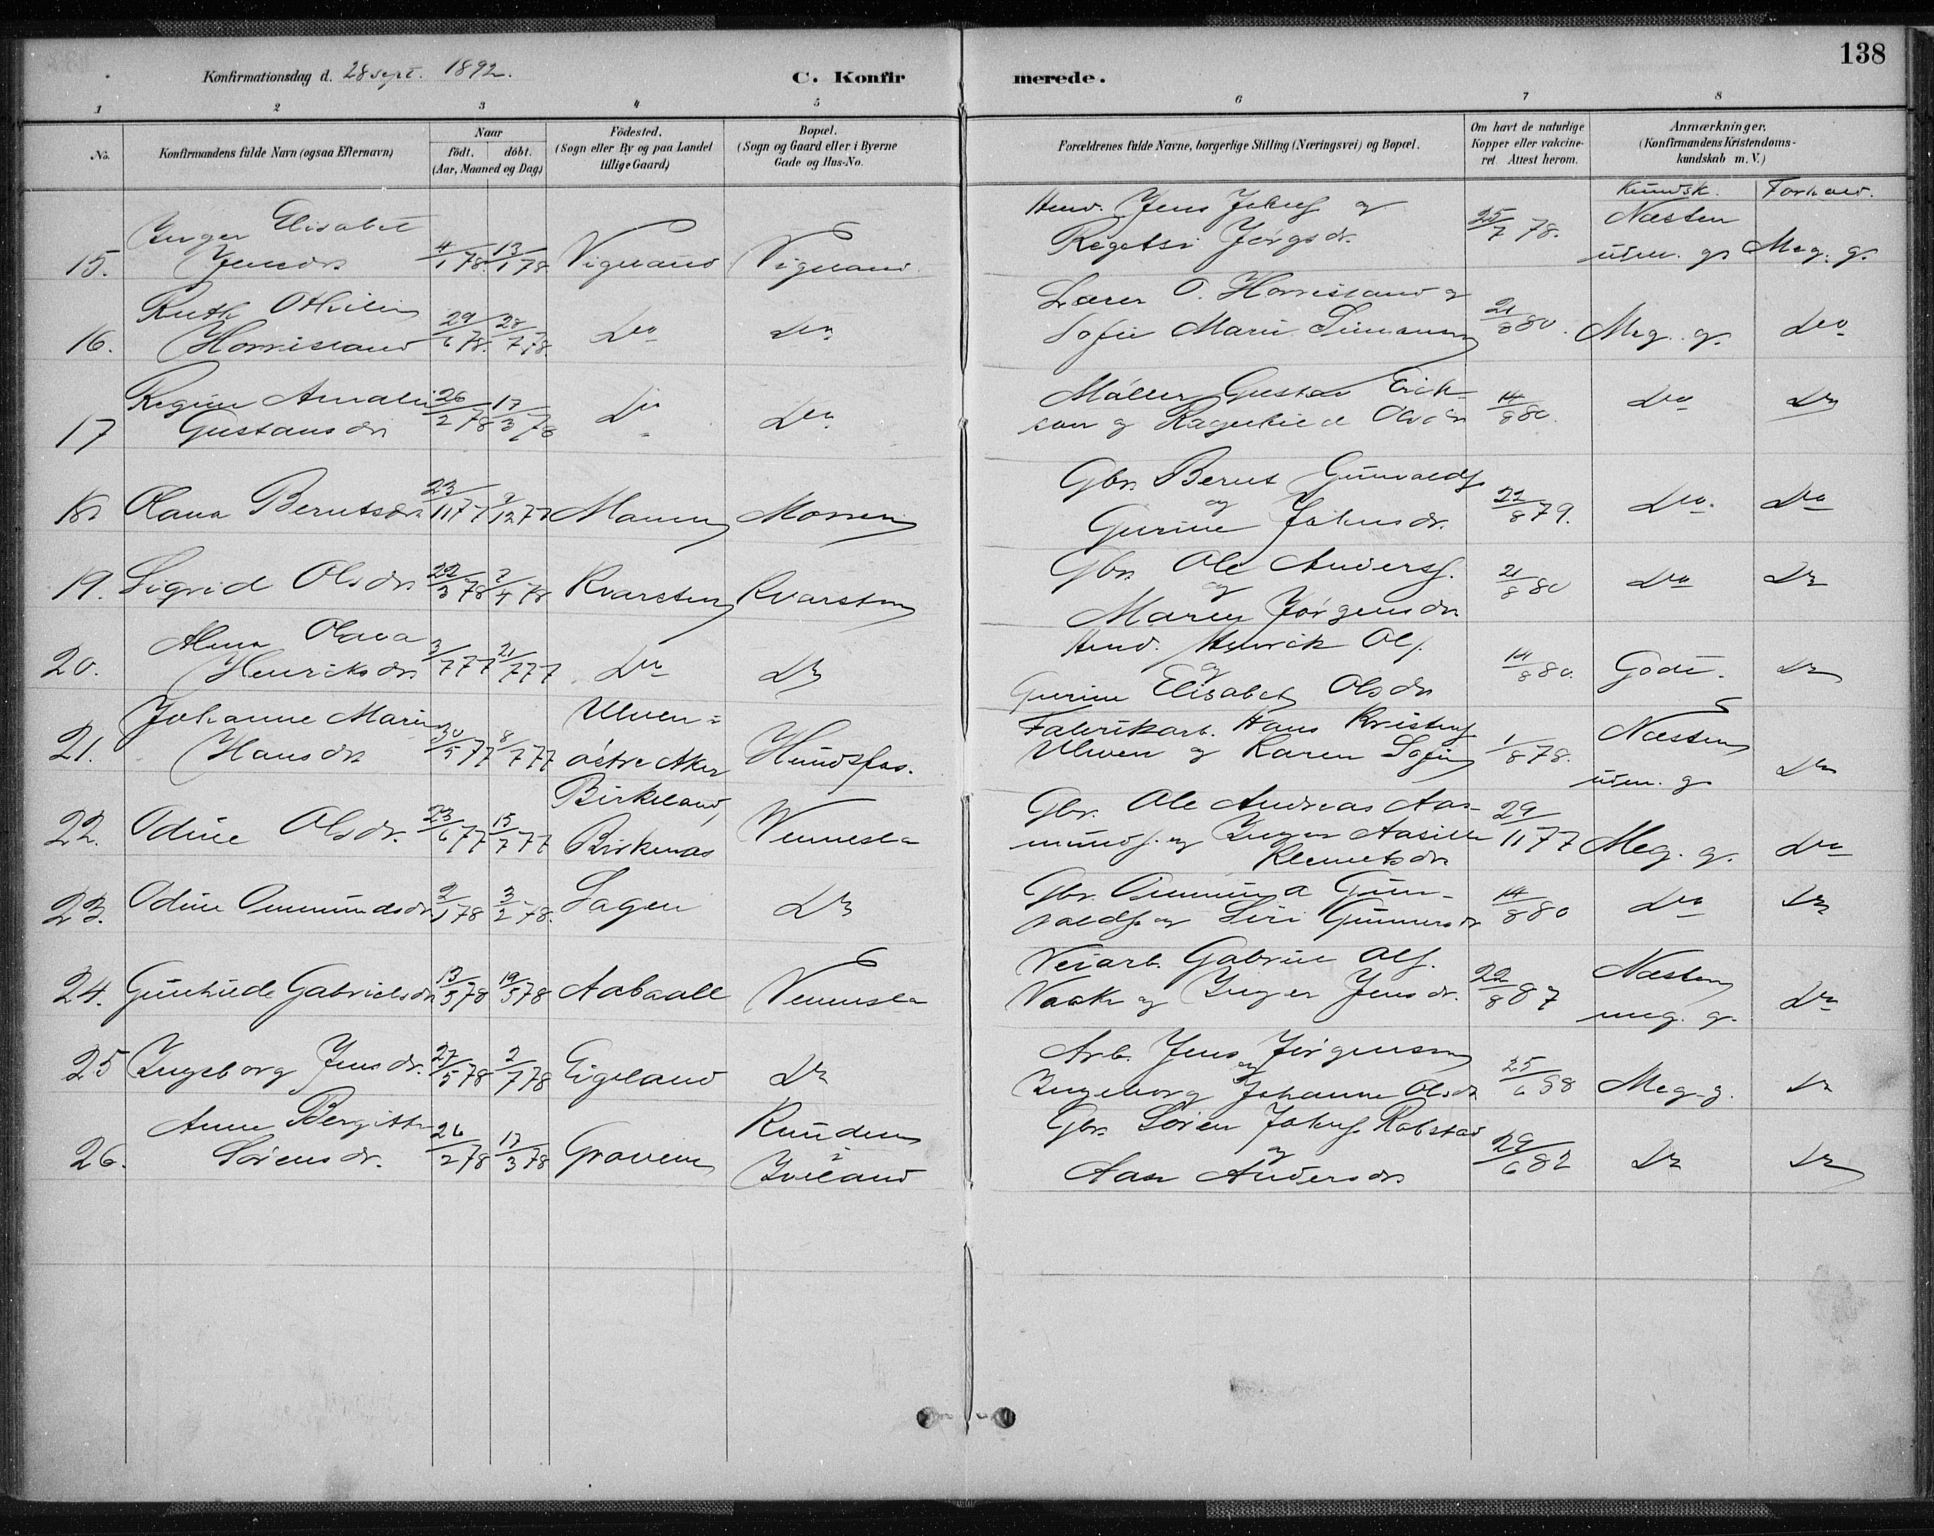 138
Konfirmationsdag d. 28 sept. 1892.
C. Konfirmerede.
1 2 3 4 5 6 7 8
No.
Konfirmandens fulde Navn (ogsaa Efternavn)
Naar
födt. döbt.
(Aar, Maaned og Dag)
Födested.
(Sogn eller By og paa Landet
tillige Gaard)
Bopæl.
(Sogn og Gaard eller i Byerne
Gade og Hus-No.
Forældrenes fulde Navne, borgerlige Stilling (Næringsvei) og Bopæl.
Om havt de naturlige
Kopper eller vakcine-
ret. Attest herom.
Anmærkninger.
(Konfirmandens Kristendoms-
kundskab m. V.)
Kundsk. Forhold.
15. Inger Elisabet
Jensdr. 4/1 78. 13/1 78 Vigeland Vigeland
Jens Jakobs. og
Jörgsdr. 25/7 78. Næsten
udm. g. Meg. g.
16. Ruth Othilie
Horrisland 29/6 78. 28/7 78 Do Do
Lærer O. Horrisland og
Sofie Marie Simonsen 21/8 80. Meg. g. Do
17 Regine Amalie
Gustavsdr. 26/2 78 17/3 78 Do Do
Möller Gustav Erik-
son og Ragnhild Olsdr. 14/8 80. Do Do
18. Olava Berntsdr. 23/11 77 9/12 77 Moseid Moseid
Gbr. Bernt Gunvalds.
og
Gurine Jakobsdr. 22/8 79. Do. Do
19. Sigrid Olsdr. 22/3 78 7/4 78 Kvarsten Kvarsten
Gbr. Ole Anders.
og
Maren Jörgensdr. 21/8 80 Do Do
20. Alma Olava
Henriksdr. 3/7 77 21/7 77 Do Do
Henrik Ols.
og
Gurine Elisabet Olsdr. 14/8 80. Godt. Do
21. Johanne Marie
Hansdr. 30/5 77 8/7 77 Ulven=
östre Aker Hundsfos.
Fabrikarb. Hans Kristens.
Ulven og Karen Sofie 1/8 78. Næsten
udm. g. Do
22. Odine Olsdr. 23/6 77 15/7 77 Birkeland,
Birkenæs Vennesla
Gbr. Ole Andreas Aas-
munds. og Inger Aasille
Klemetsdr. 29/11 77 Meg. g. Do
23. Odine Ommundsdr. 2/1 78 3/2 78. Sagen Do
Gbr. Ommund Gun-
valds. og Siri Gunnersdr. 14/8 80 Do Do
24. Gunhilde Gabrielsdr. 13/5 78 19/5 78 Aabaall Vennesla
Veiarb. Gabriel Ols.
og Inger Jensdr. 22/8 87 Næsten
meg. g. Do
25 Ingeborg Jensdr. 27/5 78 2/7 78 Eigeland Do
Arb. Jens Jörgensen
og
Ingeborg Johanne Olsdr. 25/6 88 Meg. g. Do
26. Anne Bergitte
Sörensdr. 26/2 78 17/3 78 Graveni
Iveland
Gbr. Sören Jakobs. Robstad
og
Aase Andersdr. 29/6 82 Do Do